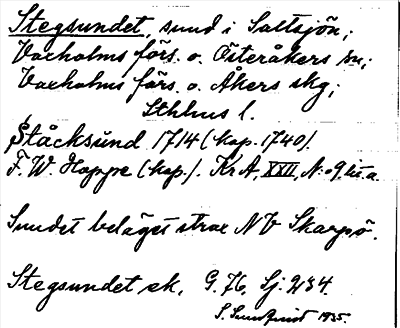 Stegsundet, sund i Saltsjön;
Vaxholms förs. o. Österåkers sn;
Vaxholms förs. o. Åkers skg;
Sthlms l.
Stäcksund 1714 (kop. 1740).
F. W. Hoppe (kop.). KrA, XXII, N:o 9 lit. a.
Sundet beläget strax NV Skarpö.
Stegsundet ek. G. 76, Sj. 234.
S. Sundquist 1935.